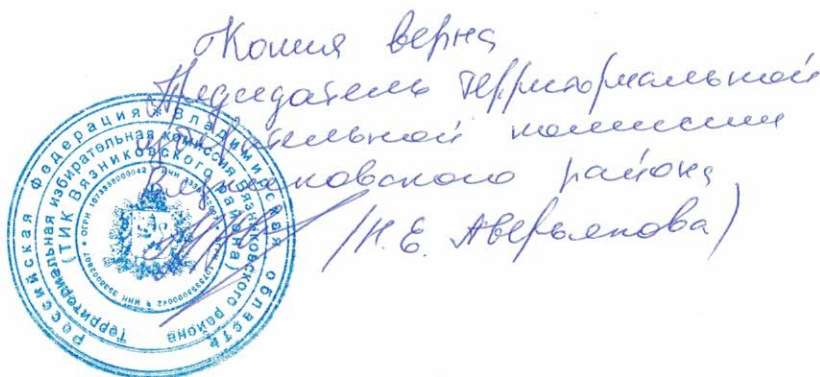 Копия верна
Председатель территориальной
избирательной комиссии
Вязниковского района
/Н.Е. Аверьянова/
Российская Федерация * Владимирская область
Территориальная избирательная комиссия Вязниковского района
(ТИК Вязниковского района)